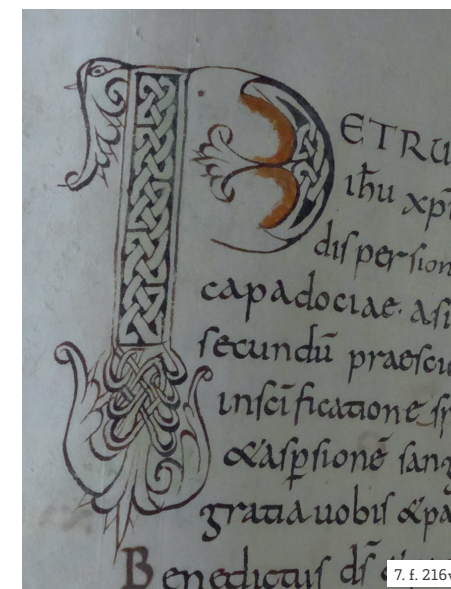 PETRU
ih̄u xp̄i
dispersion
capadociae· asi
secundū praesci
insc̄ificatione sp
&aspsionē sang
gratia uobis &pa
Benedictus ds̄ &
7. f. 216v